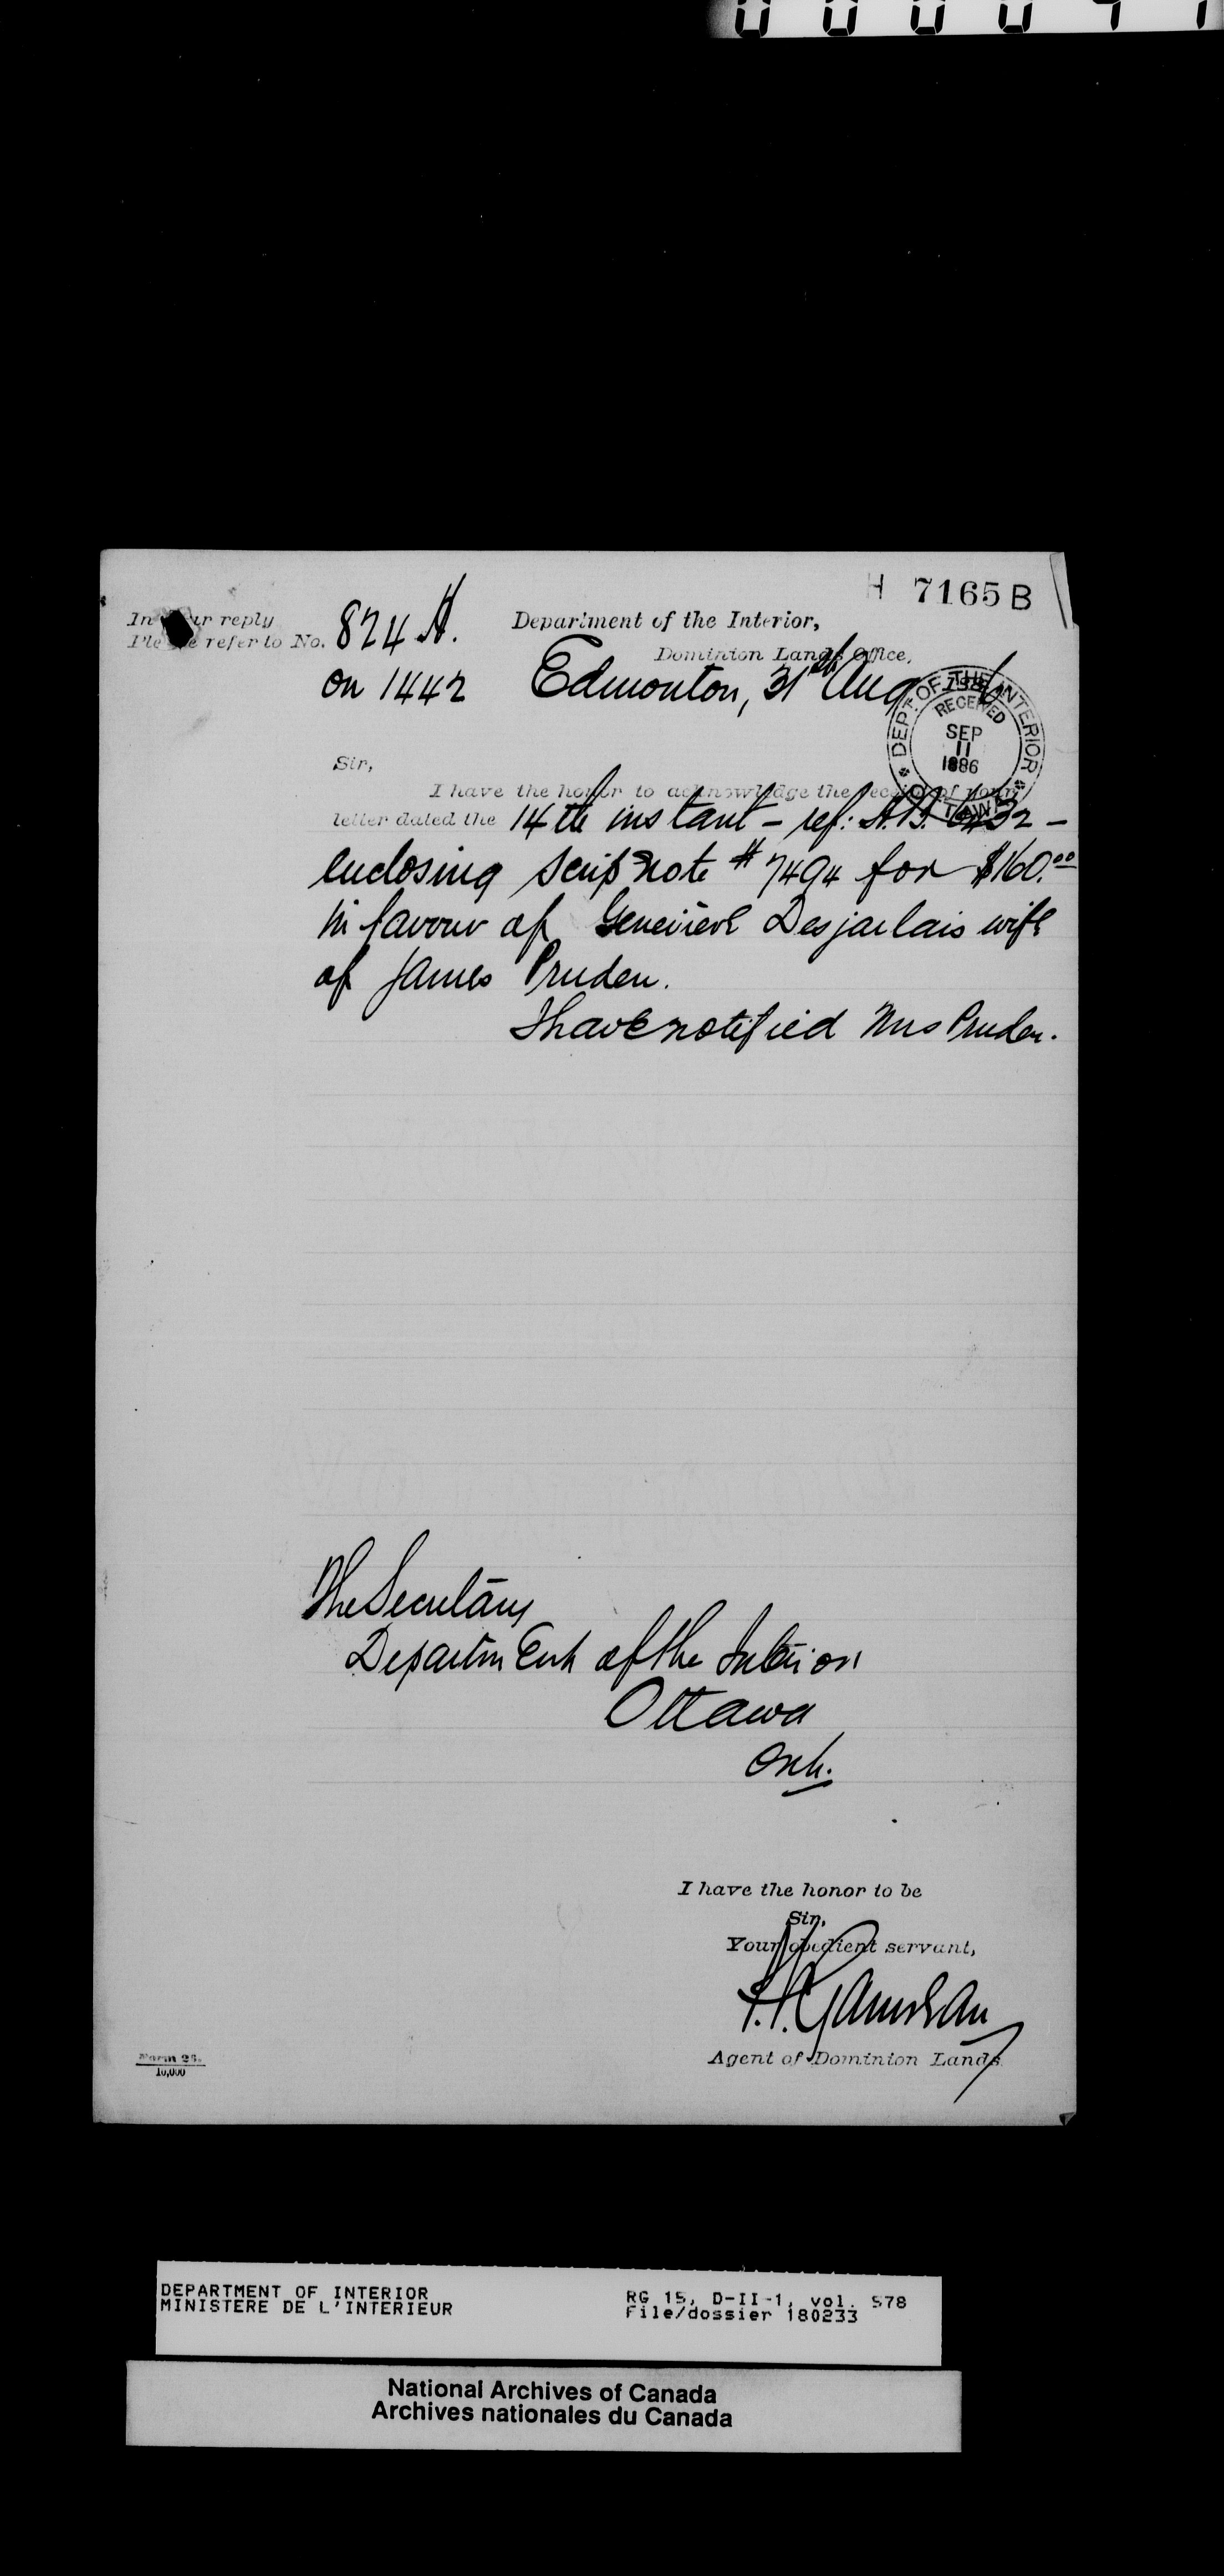 H 7165 B
In your reply
Please refer to No. 824 A.
on 1442
Department of the Interior,
Dominion Lands Office,
Edmonton, 31st Aug 1886
DEPT. OF THE INTERIOR
RECEIVED
SEP
11
1886
OTTAWA
Sir,
I have the honor to acknowledge the receipt of your
letter dated the 14th instant – ref: A.B. 6232 –
enclosing scrip note # 7494 for $160.00
in favour of Genevieve Desjarlais wife
of James Pruden.
I have notified Mrs Pruden.
The Secretary
Department of the Interior
Ottawa
Ont.
I have the honor to be
Sir,
Your obedient servant,
Agent of Dominion Lands
Form 26.
10,000
DEPARTMENT OF INTERIOR
MINISTERE DE L'INTERIEUR
RG 15, D-II-1, vol. 578
File/dossier 180233
National Archives of Canada
Archives nationales du Canada